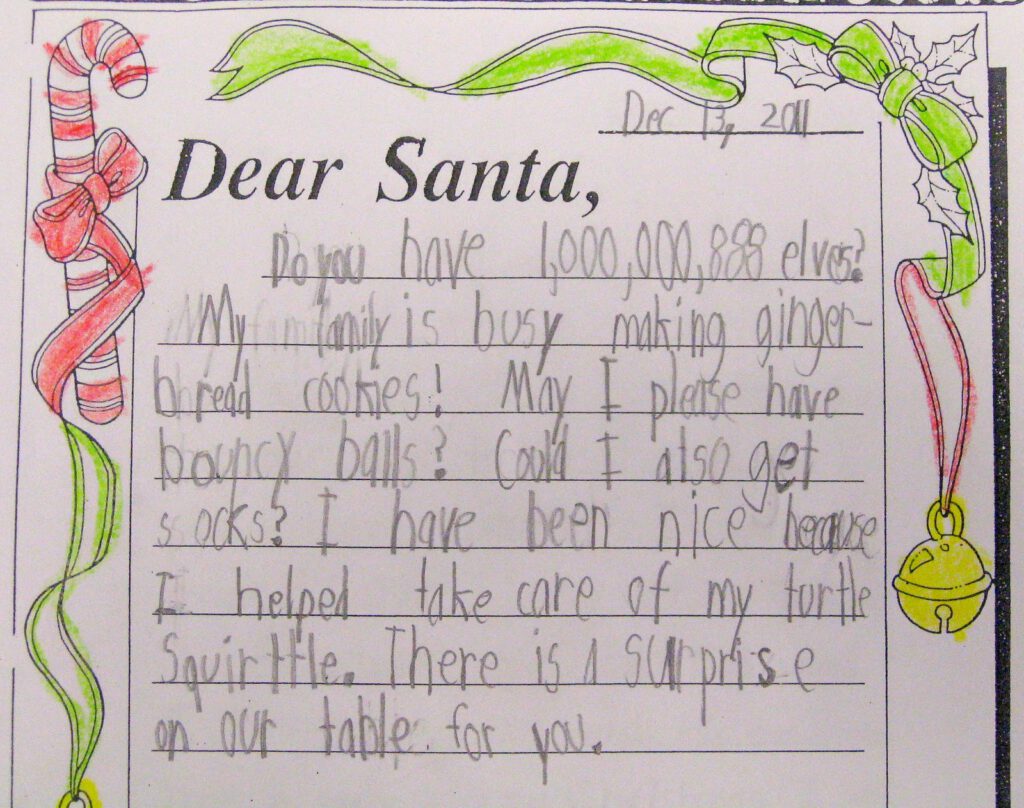 Dec 13, 2011
Dear Santa,
Do you have 1,000,000,888 elves?
My family is busy making ginger-
bread cookies! May I please have
bouncy balls? Could I also get
socks? I have been nice because
I helped take care of my turtle
Squirttle. There is a surprise
on our table for you.